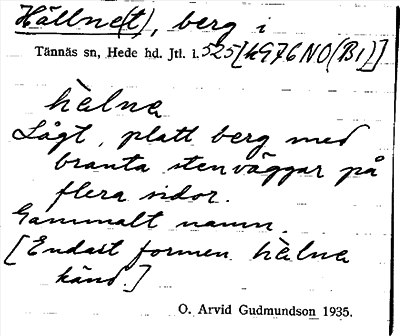 Hällne(t), berg i
Tännäs sn, Hede hd. Jtl. i. 525 [h976NO(B1)]
hàlnɐ
Lågt, platt berg med
branta stenväggar på
flera sidor.
Gammalt namn.
[Endast formen hàlnɐ
känd.]
O. Arvid Gudmundson 1935.